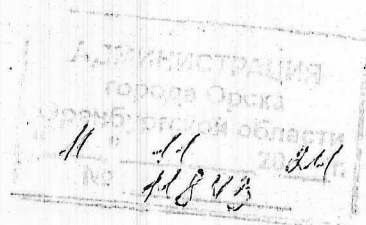 АДМИНИСТРАЦИЯ
города Орска
Оренбургской области
" 11 " 11 2024
№